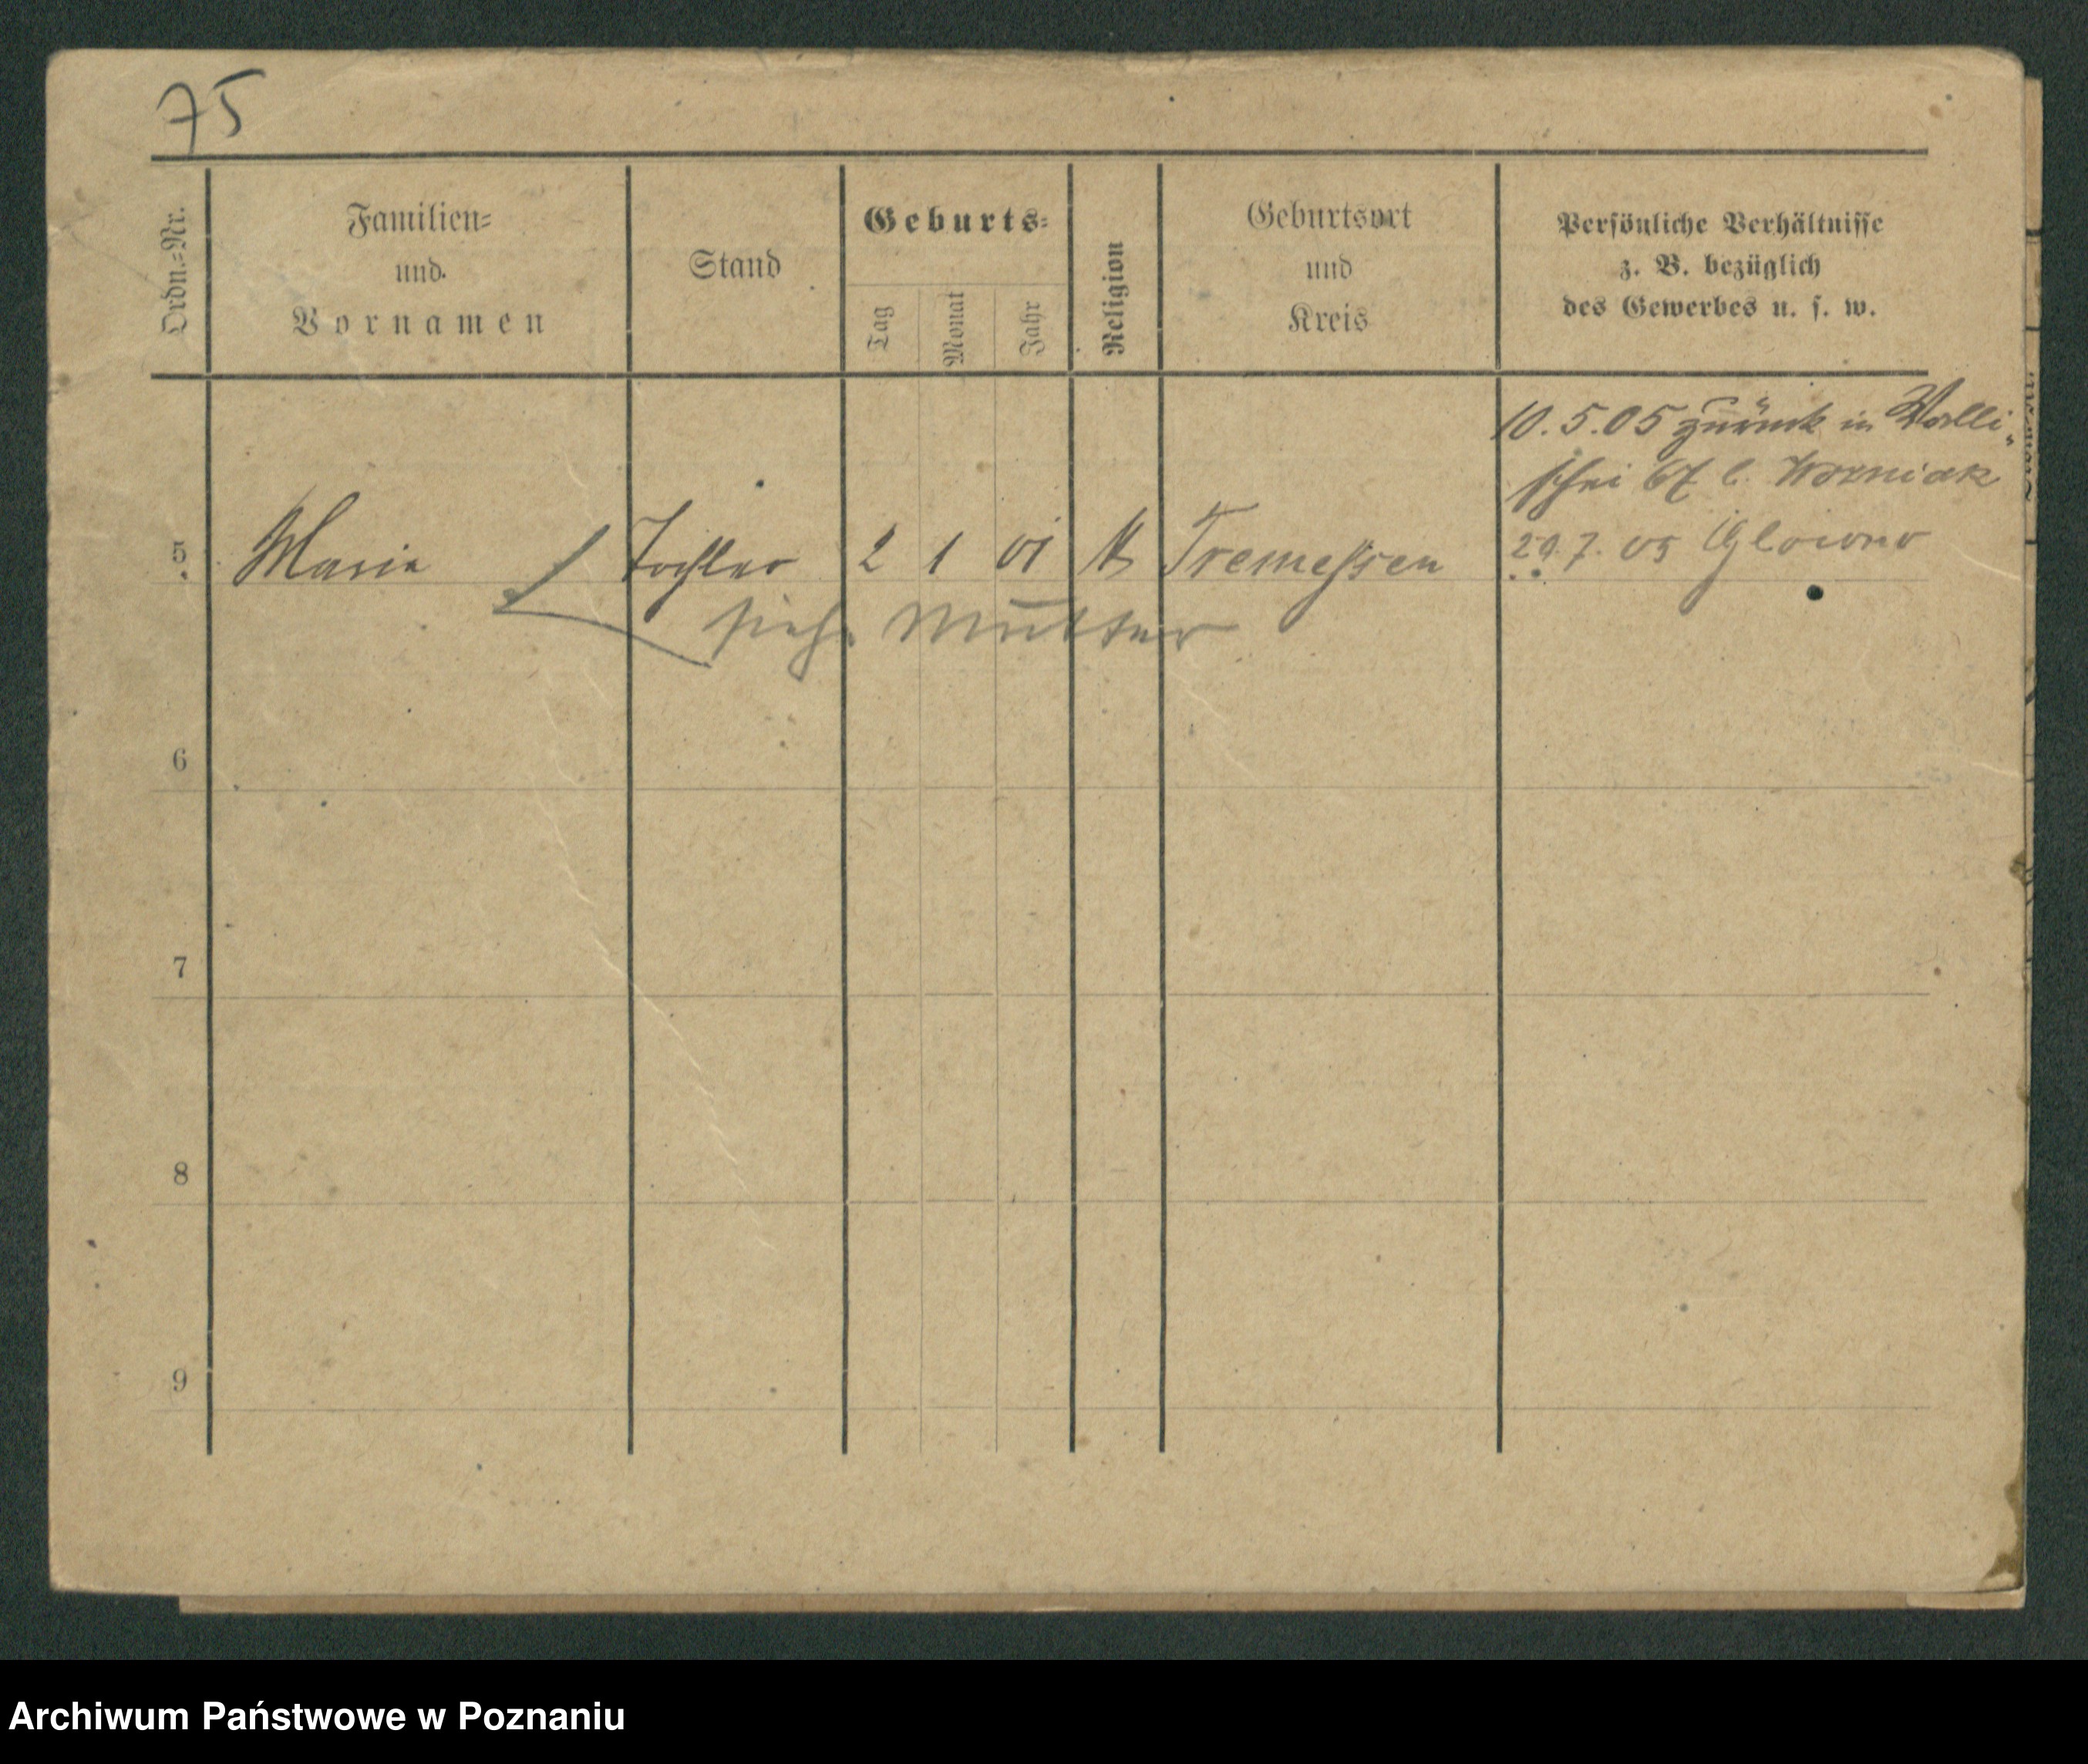 75
Ordn.=Nr.
Familien=
und
Vornamen
Stand
Geburts=
Tag
Monat
Jahr
Religion
Geburtsort
und
Kreis
Persönliche Verhältnisse
z. B. bezüglich
des Gewerbes u. s. w.
10.5.05 zurück in Walli-
schei 67 b. Wozniak
5 Maria Tochter 2 1 01 K Tremessen 29.7.05 Glowno
siehe Mutter
6
7
8
9
Archiwum Państwowe w Poznaniu